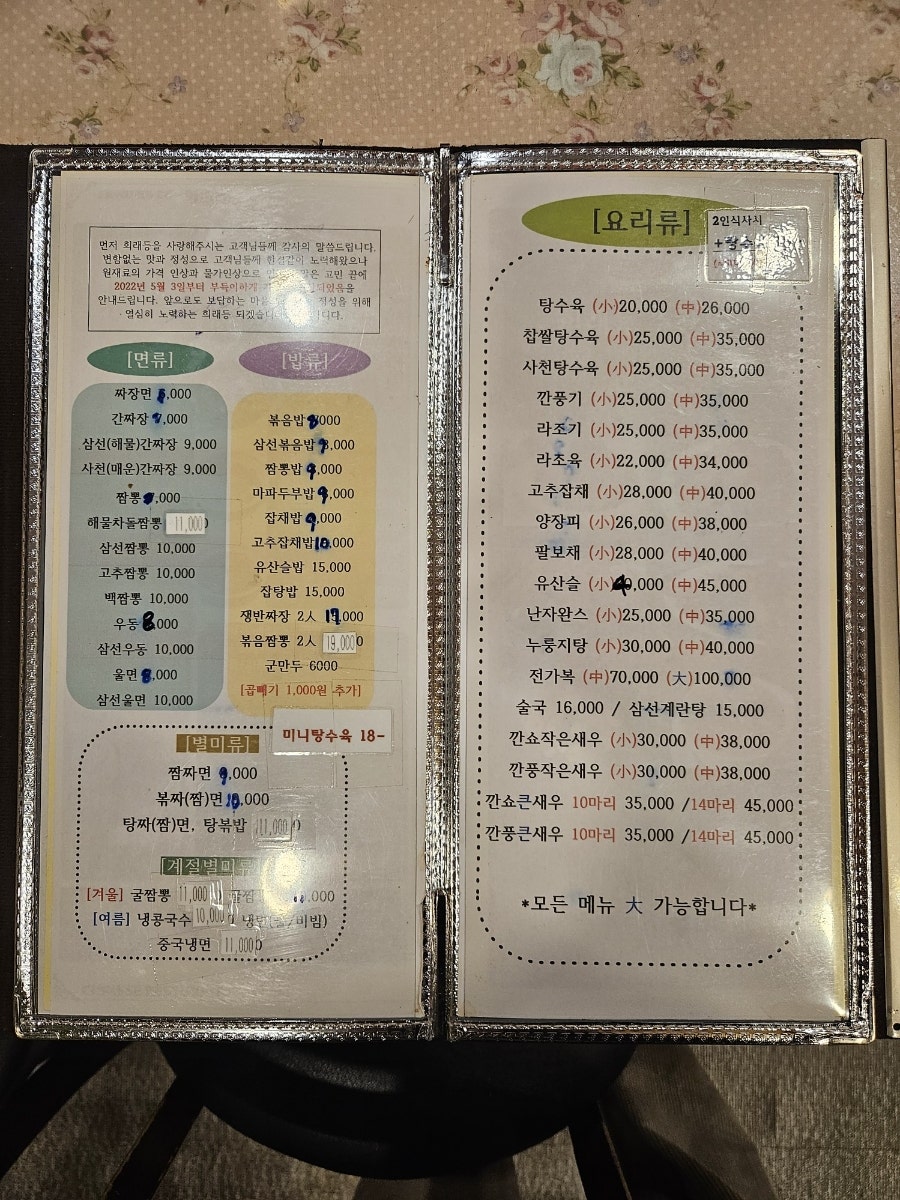 먼저 희래등을 사랑해주시는 고객님들께 감사의 말씀드립니다.
변함없는 맛과 정성으로 고객님들께 한결같이 노력해왔으나
원재료의 가격 인상과 물가인상으로 고민 끝에
2022년 5월 3일부터 부득이하게
안내드립니다. 앞으로도 보답하는 정성을 위해
열심히 노력하는 희래등 되겠습니다.
[면류]
짜장면 6,000
간짜장 7,000
삼선(해물)간짜장 9,000
사천(매운)간짜장 9,000
짬뽕 ,000
해물차돌짬뽕 11,000
삼선짬뽕 10,000
고추짬뽕 10,000
백짬뽕 10,000
우동 8,000
삼선우동 10,000
울면 8,000
삼선울면 10,000
[밥류]
볶음밥 8,000
삼선볶음밥 9,000
짬뽕밥 9,000
마파두부밥 9,000
잡채밥 9,000
고추잡채밥 10,000
유산슬밥 15,000
잡탕밥 15,000
쟁반짜장 2人 17,000
볶음짬뽕 2人 19,000
군만두 6000
[곱빼기 1,000원 추가]
미니탕수육 18-
[별미류]
짬짜면 9,000
볶짜(짬)면 10,000
탕짜(짬)면, 탕볶밥 11,000
[계절별미류]
[겨울] 굴짬뽕 11,000 ,000
[여름] 냉콩국수 10,000 냉면(물/비빔)
중국냉면 11,000
[요리류]
2인식사시
+탕수
탕수육 (小)20,000 (中)26,000
찹쌀탕수육 (小)25,000 (中)35,000
사천탕수육 (小)25,000 (中)35,000
깐풍기 (小)25,000 (中)35,000
라조기 (小)25,000 (中)35,000
라조육 (小)22,000 (中)34,000
고추잡채 (小)28,000 (中)40,000
양장피 (小)26,000 (中)38,000
팔보채 (小)28,000 (中)40,000
유산슬 (小)40,000 (中)45,000
난자완스 (小)25,000 (中)35,000
누룽지탕 (小)30,000 (中)40,000
전가복 (中)70,000 (大)100,000
술국 16,000 / 삼선계란탕 15,000
깐쇼작은새우 (小)30,000 (中)38,000
깐풍작은새우 (小)30,000 (中)38,000
깐쇼큰새우 10마리 35,000 /14마리 45,000
깐풍큰새우 10마리 35,000 /14마리 45,000
*모든 메뉴 大 가능합니다*